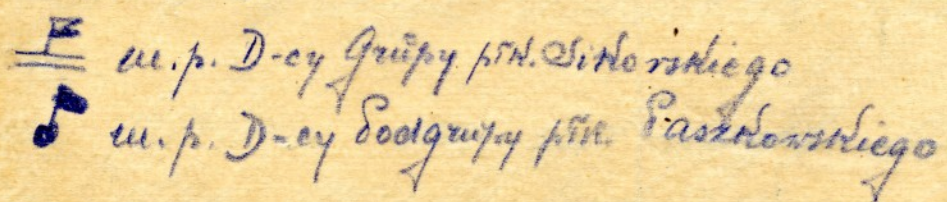 m.p. D-cy Grupy płk. Sikorskiego
m.p. D-cy Podgrupy płk. Paszkowskiego